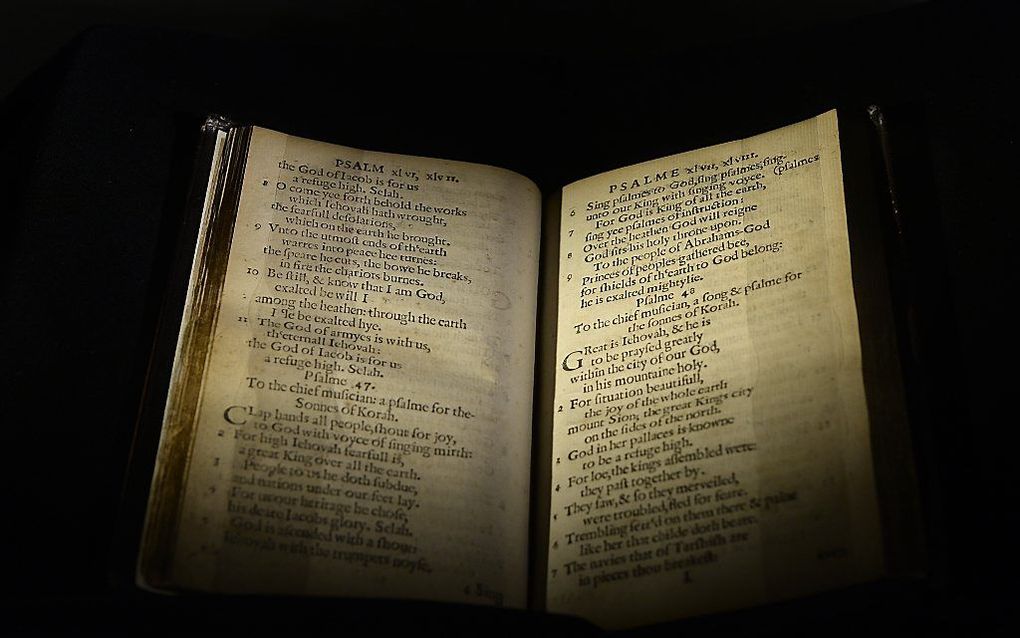 PSALM xlvi, xlvii.
the God of Iacob is for us
a refuge high. Selah.
8 O come yee forth behold the works
which Iehovah hath wrought,
the fearfull desolations,
which on the earth he brought.
9 Vnto the utmost ends of th'earth
warres into peace hee turnes:
the speare he cuts, the bowe he breaks,
in fire the chariots burnes.
10 Be still, & know that I am God,
exalted be will I
among the heathen: through the earth
I'le be exalted hye.
11 The God of armyes is with us,
th'eternall Iehovah:
the God of Iacob is for us
a refuge high. Selah.
Psalme 47.
To the chief musician: a psalme for the
Sonnes of Korah.
CLap hands all people, shout for joy,
to God with voyce of singing mirth:
2 For high Iehovah fearfull is,
a great King over all the earth.
3 People to us he doth subdue,
and nations under our feet lay.
4 For us our heritage he chose,
his deare Iacobs glory. Selah.
5 God is ascended with a shout:
Iehovah with the trumpets noyse.
6 Sing
PSALME xlvii, xlviii.
6 Sing psalmes to God, sing psalmes, sing (psalmes
unto our King with singing voyce.
7 For God is King of all the earth,
sing yee psalmes of instruction:
8 Over the heathen God will reigne
God sits his holy throne upon.
9 To the people of Abrahams-God
Princes of peoples gathered bee,
for shields of th'earth to God belong:
he is exalted mightylie.
Psalme 48
To the chief musician, a song & psalme for
the sonnes of Korah.
GReat is Iehovah, & he is
to be praysed greatly
within the city of our God,
in his mountaine holy.
2 For situation beautifull,
the joy of the whole earth
mount Sion; the great Kings city
on the sides of the north.
3 God in her pallaces is knowne
to be a refuge high.
4 For loe, the kings assembled were:
they past together by.
5 They saw, & so they merveiled,
were troubled, fled for feare.
6 Trembling seiz'd on them there & paine
like her that childe doth beare.
7 The navies that of Tarshish are
in pieces thou breakest:
I